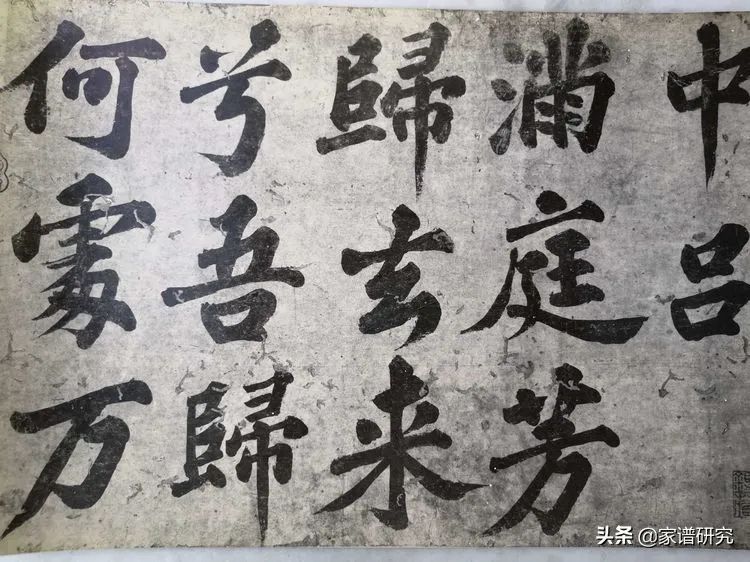 中吕
满庭芳
歸去来
兮吾歸
何處万
头条 @家谱研究